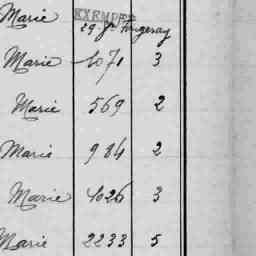 Marie EXEMPT
29 Fougeray
Marie 1071 3
Marie 569 2
Marie 984 2
Marie 1026 3
Marie 2233 5